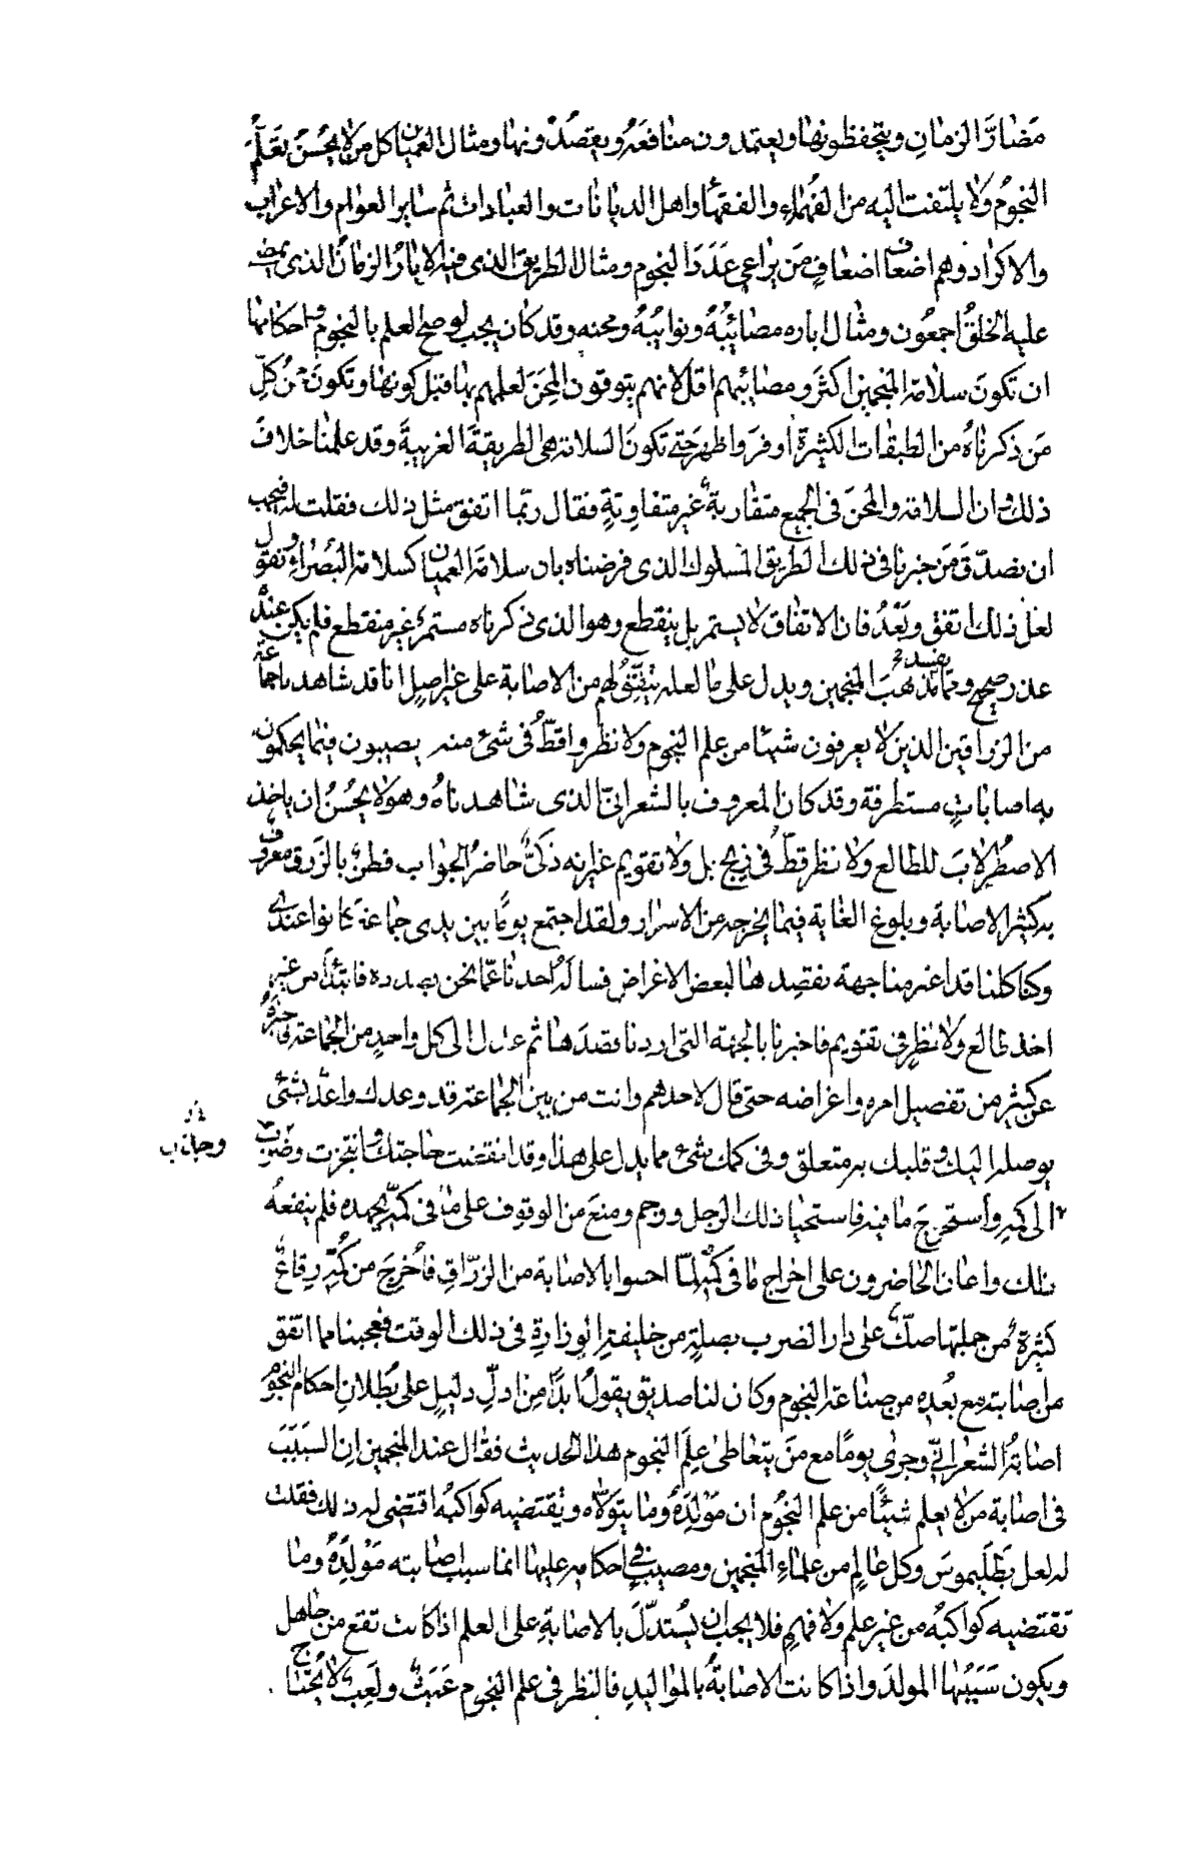 مَضَارَّ الزمانِ ويتحفظونها ويعتمدون منافعَهُ ويقصدُونها ومثال العميان كل من لا يُحسنُ تعَلّمَ
النجوُم ولا يلتفت اليه من الفُهَمَاءِ والفقهَاءِ واهل الديانات والعبادات ثم ساير العوام والاعراب
والاكراد وهم اضعاف اضعافِ مَن يراعي عَدَدَ النجوم ومثال الطريق الذى فيه الابارُ الزمانُ الذى يمضى
عليه الخلقُ اجمعُون ومثال اباره مصَائِبُهُ ونوايبُهُ ومحنه وقد كان يجب لو صح العلم بالنجوم واحكامها
ان تكونَ سلامة المنجمين اكثَرَ ومصائبهم اقلّ لانهم يتوقون المِحَنَ لعلمهم بها قبل كونها وتكونَ مِحَنُ كلّ
مَن ذكرناهُ من الطبقات الكثيرة اوفرَ واظهرَ حتى تكونَ السلامة هى الطريقةَ الغريبةَ وقد علمنا خلافَ
ذلك وان السلامة والمحنَ فى الجميع متقاربةٌ غير متفاوِتةٍ فقال ربما اتفق مثل ذلك فقلت له فيجب
ان نصدّقَ مَن خبرنا فى ذلك الطريق المسلوك الذى فرضناه بان سلامة العميان كسلامة البُصَرَاءِ ونقول
لعل ذلك اتفق وبَعْدُ فان الاتفاق لا يستمر بل ينقطع وهو الذى ذكرناه مستمر غير منقطع فلم يكن عندهُ
عذر صحيح ومما يفسد مذهبَ المنجمين ويدل على ما لعله يتّفِقُ لهم من الاصابة على غير اصل انا قد شاهدنا جماعة
من الزراقين الذين لا يعرفون شيئًا من علم النجوم ولا نظروا قطّ فى شىءٍ منه يصيبون فيما يحكمون
به اصاباتٍ مستطرفة وقد كان المعروف بالشعرانىّ الذى شاهدناهُ وهو لا يُحْسِنُ ان ياخذ
الاصْطُرلابَ للطالع ولا نظر قطّ فى زيج بل ولا تقويم غير انه ذكىّ حاضرُ الجواب فطن بالزرق معروف
به كثير الاصابة وبلوغ الغاية فيما يخرجه من الاسرار ولقد اجتمع يومًا بين يدى جماعةَ كانوا عندى
وكنا كلنا قد اعتزمنا جهة نقصِدها لبعض الاغراض فسالهُ احدنا عمّا نحن بصدده فابتدأ من غير
اخذ طالع ولا نظرٍ فى تقويم فاخبرنا بالجهة التى اردنا قصدَها ثم عدل الى كل واحدٍ من الجماعة فاخبرهُ
عن كثير من تفصيل امره واغراضه حتى قال لاحدهم وانت من بين الجماعة قد وعدك واعد بشىءٍ
يوصله اليك وقلبك به متعلق وفى كمك شىء مما يدل على هذا وقد انقضت حاجتك وانتجزت وضرب
وجذب
الى كمه وأستخرجَ ما فيه فاستحيا ذلك الرجل ووجم ومنعَ من الوقوف على ما فى كمّه بجهده فلم ينفعهُ
ذلك واعان الحاضرون على اخراج ما فى كمّه لمّا احسوا بالاصابة من الزرّاقِ فأُخرِجَ من كُمّه رِقاعٌ
كثيرةٌ من جملتها صكٌّ على دار الضرب بصلةٍ من خليفةِ الوزارةِ فى ذلك الوقت فعجبنا مما اتفق
من اصابته مع بُعدِه من صناعة النجوم وكان لنا صديق يقولُ ابدًا من ادلّ دليلٍ على بُطلانِ احكام النجوم
اصابةُ الشعرانىّ وجرى يومًا مع مَن يتعاطى علمَ النجوم هذا الحديث فقال عند المنجمين انّ السبَبَ
فى اصابة من لا يعلم شيئًا من علم النجُوم ان مَوْلِدَهُ وما يتوَلّاه ويقتضيه كواكبُهُ اقتضى له ذلك فقلت
له لعل بَطْلَيموسَ وكل عَالمٍ من علمَاءِ المنجمين ومصيب فى احكامه عليها انما سبب اصابته مَوْلِدُهُ وما
تقتضيه كواكبُه من غير علم ولا فهمٍ فلا يجب ان يُستدلّ بالاصابةِ على العلم اذا كانت تقع من جاهل
ويكون سَبَبُها المولدَ واذا كانت الاصابةُ بالمواليدِ فالنظر فى علم النجوم عَبَثٌ ولَعِبٌ لا يُحتاج